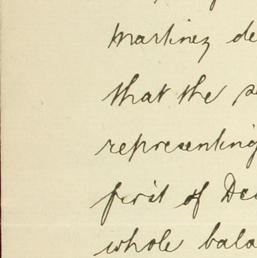 Martinez de
that the
representing
first of Dec
whole bala